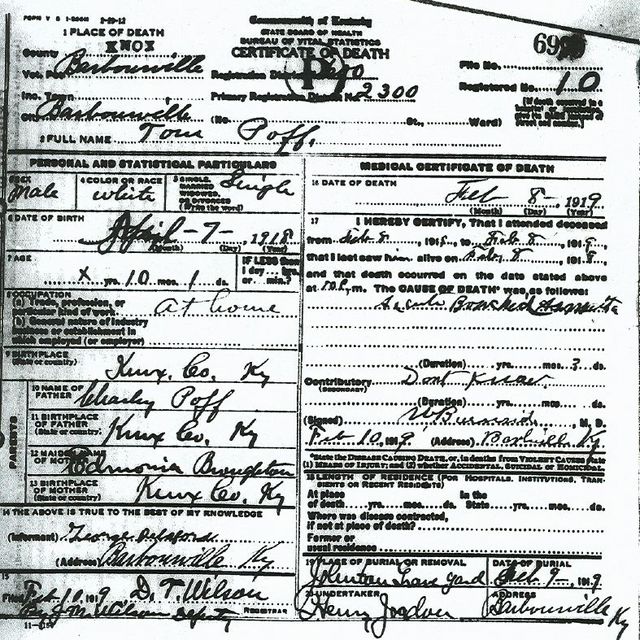 FORM V S 1-200M 2-20-12
1 PLACE OF DEATH
County KNOX
Vot. Barbourville
Inc. Town
Barbourville
Commonwealth of Kentucky
STATE BOARD OF HEALTH
BUREAU OF VITAL STATISTICS
CERTIFICATE OF DEATH
Registration District
Primary Registration District No. 2300
(No. St., Ward)
File No.
Registered No. 10
2 FULL NAME Tom Poff.
PERSONAL AND STATISTICAL PARTICULARS
SEX Male
4 COLOR OR RACE white
5 SINGLE, MARRIED, WIDOWED, OR DIVORCED (Write the word) Single
6 DATE OF BIRTH
April - 7 -, 1918
(Month) (Day) (Year)
7 AGE
x yrs. 10 mos. 1 ds.
IF LESS than 1 day... hrs. or... min.?
8 OCCUPATION
(a) Trade, profession, or particular kind of work at home
(b) General nature of industry
business or establishment in
which employed (or employer)
9 BIRTHPLACE
(State or country) Knox. Co. Ky
PARENTS
10 NAME OF FATHER Charley Poff
11 BIRTHPLACE OF FATHER (State or country) Knox Co. Ky
12 MAIDEN NAME OF MOTHER Edmonia Broughton
13 BIRTHPLACE OF MOTHER (State or country) Knox Co. Ky
14 THE ABOVE IS TRUE TO THE BEST OF MY KNOWLEDGE
(Informant) George
(Address) Barbourville Ky
15
Filed Feb 10, 1919 D. T. Wilson
REGISTRAR
By J M Wilson Deputy
MEDICAL CERTIFICATE OF DEATH
16 DATE OF DEATH
Feb 8, 1919
(Month) (Day) (Year)
17 I HEREBY CERTIFY, That I attended deceased
from Feb 8, 191 to Feb 8, 191
that I last saw him alive on Feb 8, 191
and that death occurred on the date stated above
at m. The CAUSE OF DEATH* was as follows:
(Duration) yrs. mos. ? ds.
Contributory Dont Know
(SECONDARY)
(Duration) yrs. mos. ds.
(Signed) M. D.
Feb 10, 1919 (Address) Ky.
*State the DISEASE CAUSING DEATH, or, in deaths from VIOLENT CAUSES state
(1) MEANS OF INJURY; and (2) whether ACCIDENTAL, SUICIDAL or HOMICIDAL.
18 LENGTH OF RESIDENCE (FOR HOSPITALS, INSTITUTIONS, TRANSIENTS OR RECENT RESIDENTS)
At place of death yrs. mos. ds. In the State yrs. mos. ds.
Where was disease contracted,
if not at place of death?
Former or
usual residence
19 PLACE OF BURIAL OR REMOVAL
Grave yard
DATE OF BURIAL
Feb. 9 - 1919
20 UNDERTAKER
Henry
ADDRESS
Barbourville Ky